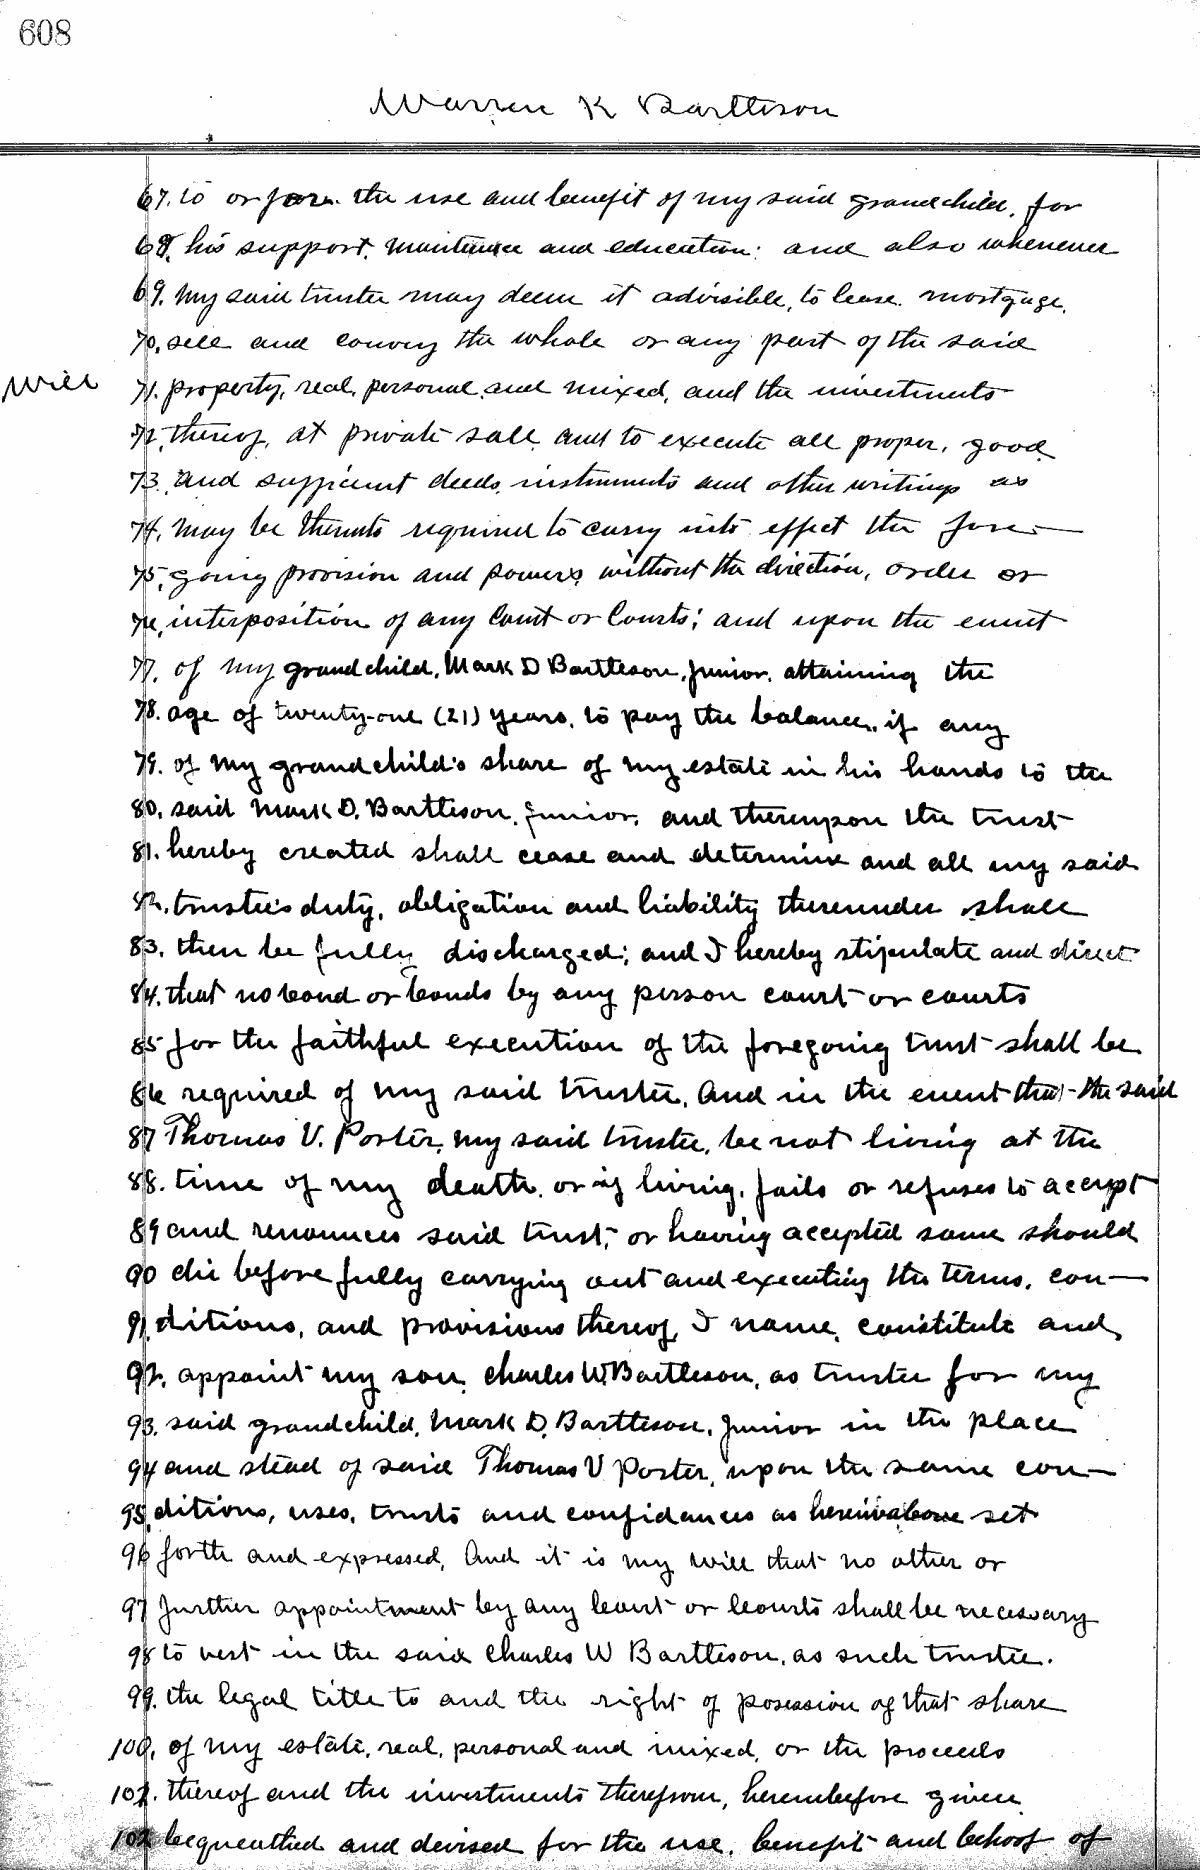 608
Warren K Bartleson
67. to or for the use and benefit of my said grandchild, for
68. his support, maintenance and education; and also whenever
69. my said trustee may deem it advisible, to lease, mortgage,
70. sell and convey the whole or any part of the said
Will
71. property, real, personal and mixed, and the investments
72. thereof, at private sale and to execute all proper, good
73. and sufficient deeds, instruments and other writings as
74. may be thereunto required to carry into effect the fore-
75. going provision and powers, without the direction, order or
76. interposition of any Court or Courts; and upon the event
77. of my grandchild, Mark D Bartleson, Junior, attaining the
78. age of twenty-one (21) years, to pay the balance, if any
79. of my grandchild's share of my estate in his hands to the
80. said Mark D. Bartleson, Junior, and thereupon the trust
81. hereby created shall cease and determine and all my said
82. trustee's duty, obligation and liability thereunder shall
83. then be fully discharged; and I hereby stipulate and direct
84. that no bond or bonds by any person court or courts
85 for the faithful execution of the foregoing trust shall be
86 required of my said trustee. And in the event that the said
87 Thomas V. Porter, my said trustee, be not living at the
88. time of my death, or if living, fails or refuses to accept
89 and renounces said trust, or having accepted same should
90 die before fully carrying out and executing the terms, con-
91. ditions, and provisions thereof, I name, constitute and
92. appoint my son, Charles W. Bartleson, as trustee for my
93. said grandchild, Mark D. Bartleson, Junior in the place
94 and stead of said Thomas V Porter, upon the same con-
95. ditions, uses, trusts and confidances as hereinabove set
96 forth and expressed. And it is my will that no other or
97 further appointment by any Court or Courts shall be necessary
98 to vest in the said Charles W Bartleson, as such trustee.
99. the legal title to and the right of posession of that share
100. of my estate, real, personal and mixed, or the proceeds
101. thereof and the investments therefrom, hereinbefore given
102 bequeathed and devised for the use, benefit and behoof of